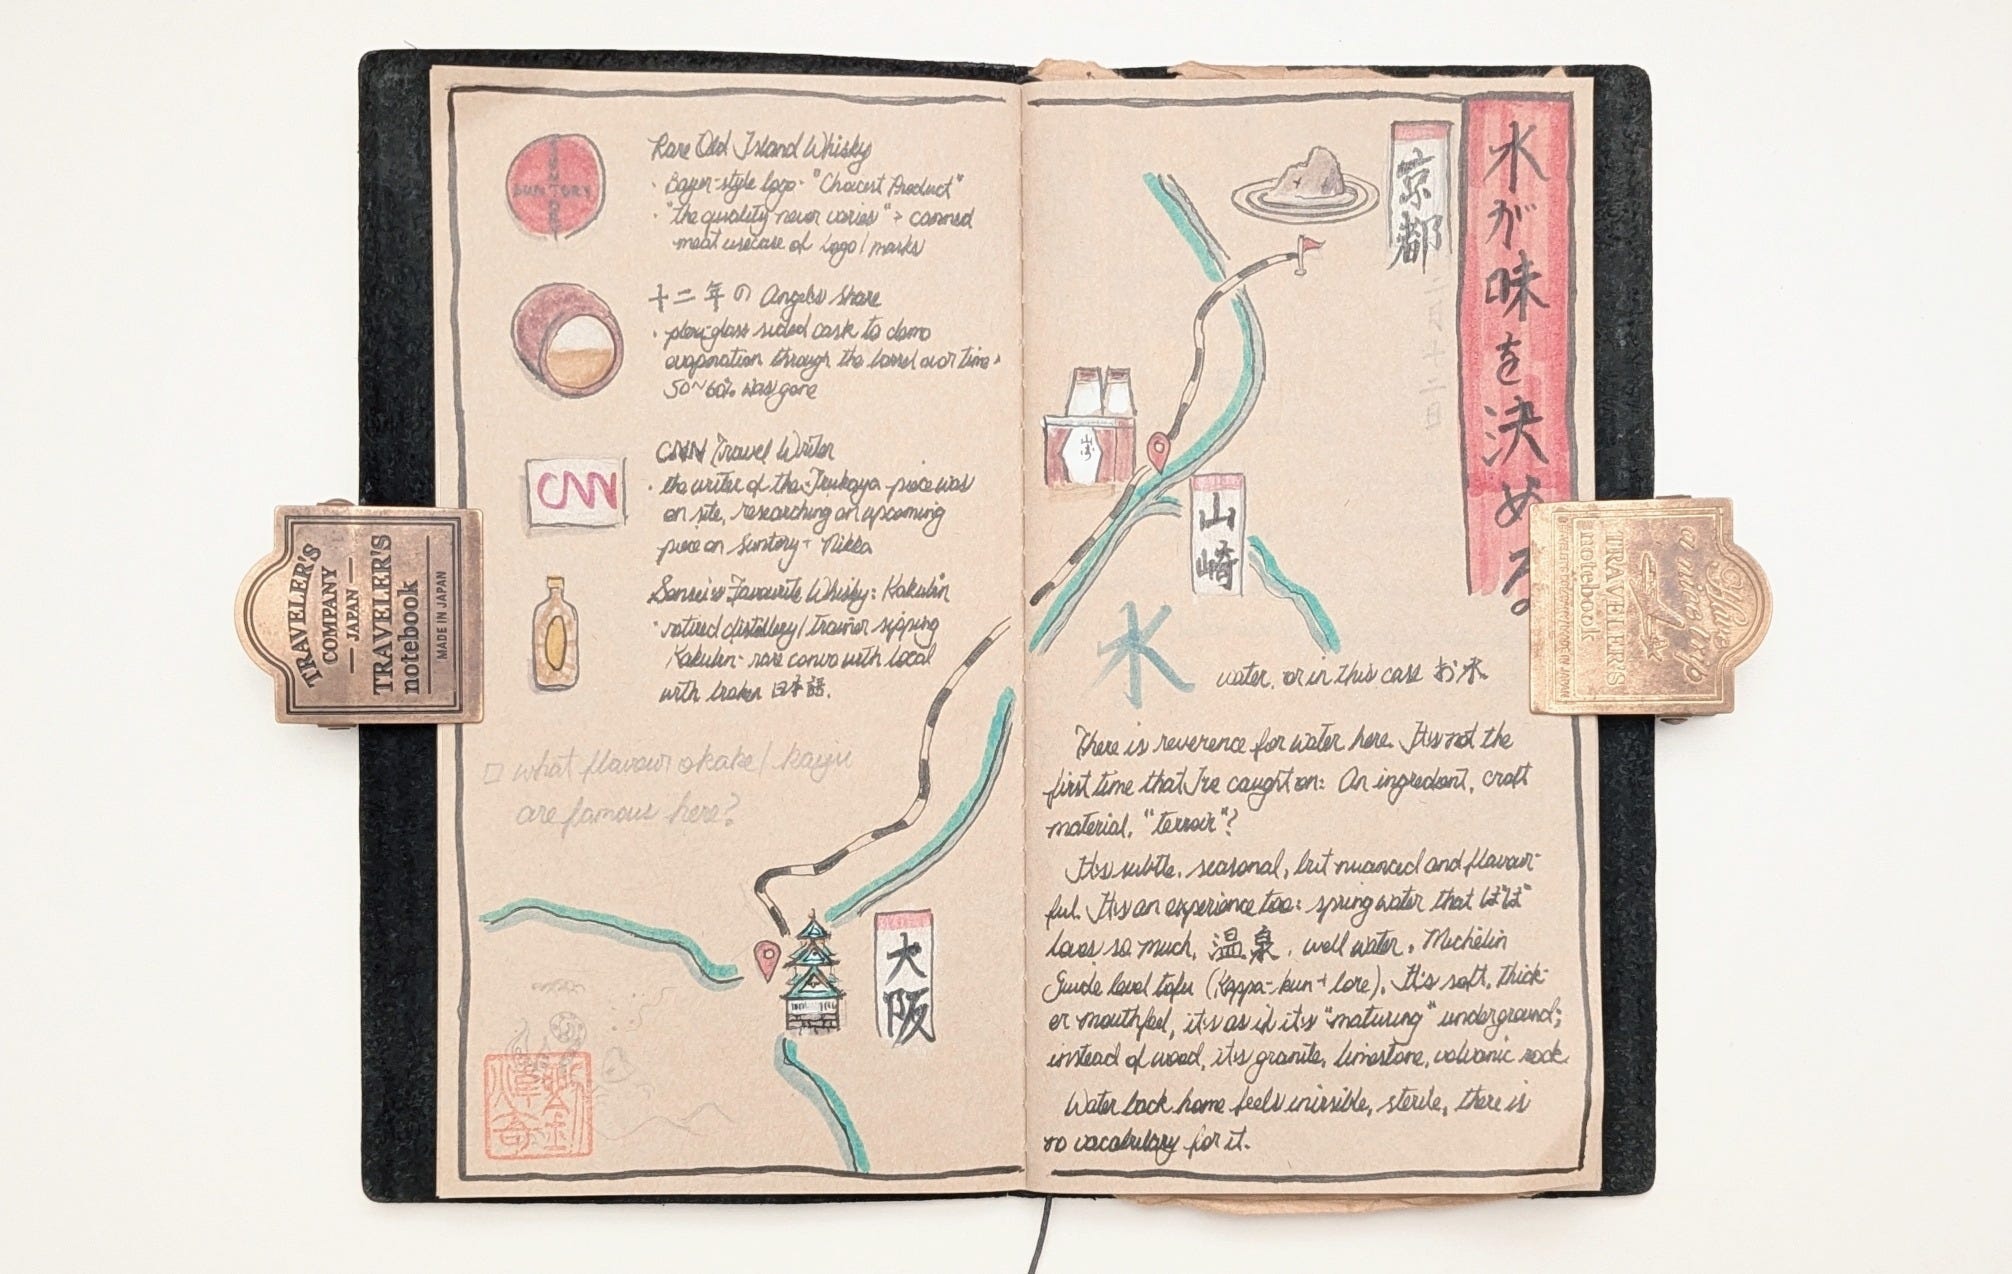 SUNTORY
Rare Old Island Whisky
· Bayer-style logo- "Choicest Product"
· "the quality never varies" + canned
meat usecase of logo/marks
十二年の Angel's share
· plexi-glass sided cask to demo
evaporation through the barrel over time·
50~60% was gone
CNN
CNN Travel Writer
· the writer of the piece was
on site, researching an upcoming
piece on Suntory + Nikka
Sensei's Favourite Whisky: Kakubin
· retired distillery/trainer sipping
Kakubin- rare convo with local
with broken 日本語.
□ what flavour okake/ kaiju
are famous here?
大阪
TRAVELER'S
COMPANY
— JAPAN —
TRAVELER'S
notebook
MADE IN JAPAN
水が味を決める
京都
二月十二日
山崎
山崎
水
water, or in this case お水
There is reverence for water here. It's not the
first time that I've caught on: An ingredient, craft
material, "terroir"?
It's subtle, seasonal, but nuanced and flavour-
ful. It's an experience too: spring water that ばば
loves so much, 温泉, well water, Michelin
Guide level tofu (Kappa-kun + lore). It's soft, thick-
er mouthfeel, it's as if it's "maturing" underground;
instead of wood, it's granite, limestone, volcanic rock.
Water back home feels invisible, sterile, there is
no vocabulary for it.
Have
a nice trip
TRAVELER'S
notebook